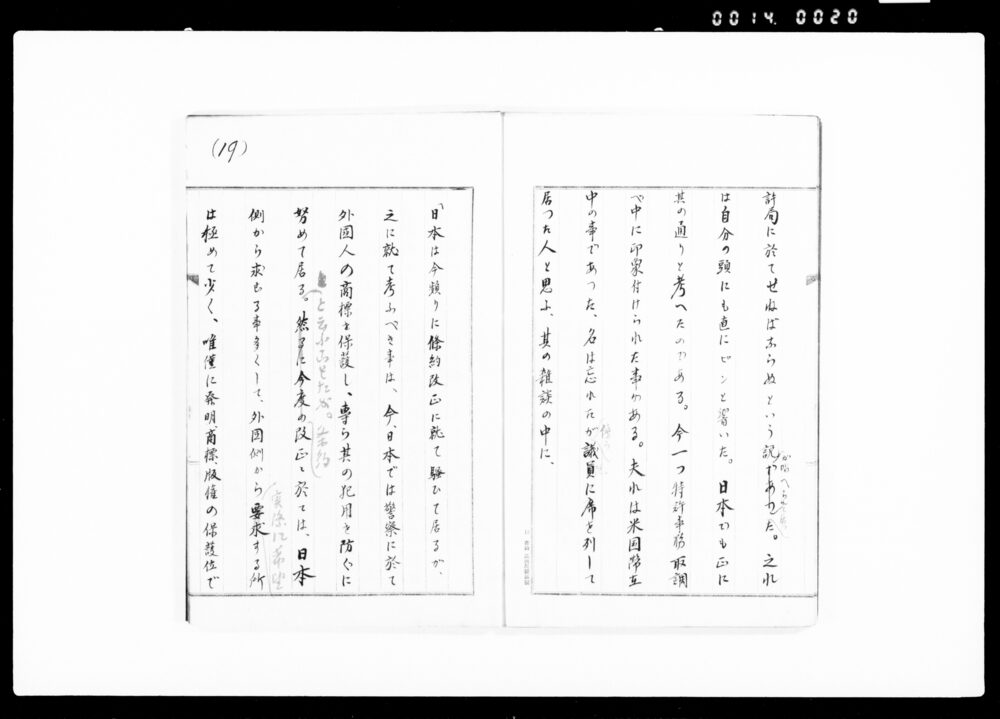 0014 0020
許局に於てせねばならぬという説であつた。之れ
が唱へられて
は自分の頭にも直にピンと響いた。日本でも正に
其の通りと考へたのである。今一つ特許事務取調
べ中に印象付けられた事がある。夫れは米国滞在
中の事であつた、名は忘れたが議員に席を列して
居つた人と思ふ、其の雑談の中に、
(19)
「日本は今頻りに條約改正に就て騒ひて居るが、
之に就て考ふべき事は、今、日本では警察に於て
外国人の商標を保護し、専ら其の犯用を防ぐに
努めて居る。然るに今度の改正に於ては、日本
と云ふことだが。条約
側から求むる事多くして、外国側から要求する所
実際に希望
は極めて少く、唯僅に発明、商標、版権の保護位で